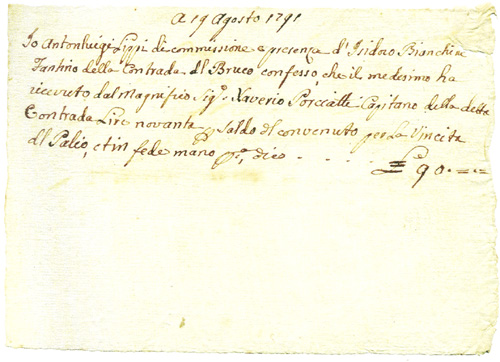 A 19 Agosto 1791
Io Antonluigi Lippi di commissione e presenza d'Isidoro Bianchini
Fantino della Contrada del Bruco confesso, che il medesimo ha
ricevuto dal magnifico Sig.r Xaverio Porciatti Capitano della detta
Contrada Lire novanta p Saldo del convenuto per La Vincita
del Palio, et in fede mano pp.a, dico . . . . . £ 90. = =